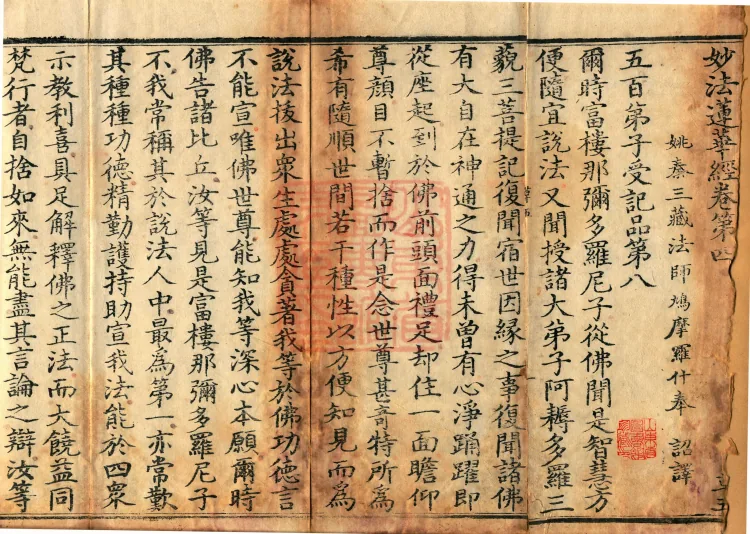 妙法蓮華經卷第四
姚秦三藏法師鳩摩羅什奉 詔譯
五百弟子受記品第八
爾時富樓那彌多羅尼子從佛聞是智慧方
便隨宜說法又聞授諸大弟子阿耨多羅三
藐三菩提記復聞宿世因縁之事復聞諸佛
有大自在神通之力得未曾有心淨踊躍即
從座起到於佛前頭面禮足却住一面瞻仰
尊顔目不暫捨而作是念世尊甚奇特所爲
希有隨順世間若干種性以方便知見而爲
說法拔出衆生處處貪著我等於佛功德言
不能宣唯佛世尊能知我等深心本願爾時
佛告諸比丘汝等見是富樓那彌多羅尼子
不我常稱其於說法人中最爲第一亦常歎
其種種功德精勤護持助宣我法能於四衆
示教利喜具足解釋佛之正法而大饒益同
梵行者自捨如來無能盡其言論之辯汝等